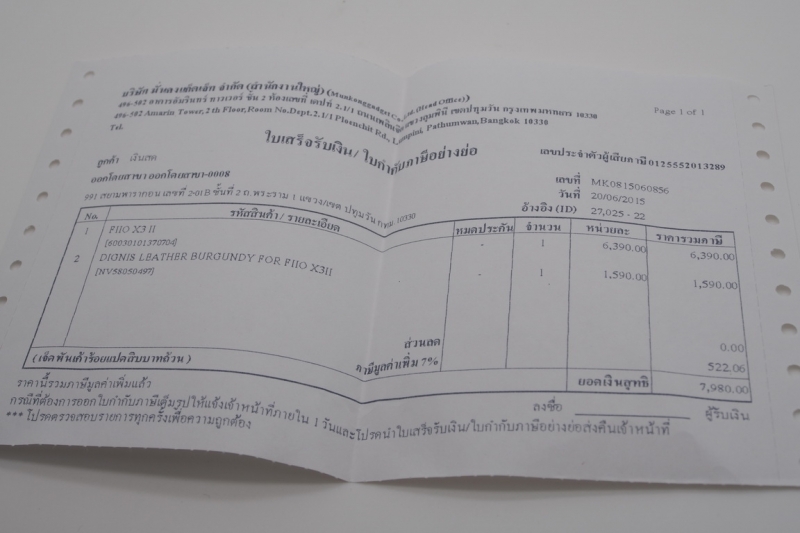 บริษัท มั่นคงแก็ดเจ็ท จำกัด (สำนักงานใหญ่) (Munkonggadget Co.,Ltd.(Head Office))
496-502 อาคารอัมรินทร์ ทาวเวอร์ ชั้น 2 ห้องเลขที่ เดปท์ 2.1/1 ถนนเพลินจิต แขวงลุมพินี เขตปทุมวัน กรุงเทพมหานคร 10330
496-502 Amarin Tower,2th Floor,Room No.Dept.2.1/1 Ploenchit Rd., Lumpini, Pathumwan,Bangkok 10330
Page 1 of 1
Tel.
ใบเสร็จรับเงิน/ ใบกำกับภาษีอย่างย่อ
เลขประจำตัวผู้เสียภาษี 0125552013289
ลูกค้า เงินสด
เลขที่ MK0815060856
ออกโดยสาขา ออกโดยสาขา-0008
วันที่ 20/06/2015
991 สยามพารากอน เลขที่ 2-01B ชั้นที่ 2 ถ.พระราม 1 แขวง/เขต ปทุมวัน กทม.10330
อ้างอิง (ID) 27,025 - 22
No. รหัสสินค้า / รายละเอียด หมดประกัน จำนวน หน่วยละ ราคารวมภาษี
1 FIIO X3 II - 1 6,390.00 6,390.00
[60030101370704]
2 DIGNIS LEATHER BURGUNDY FOR FIIO X3II - 1 1,590.00 1,590.00
[NV58050497]
ส่วนลด 0.00
(เจ็ดพันเก้าร้อยแปดสิบบาทถ้วน) ภาษีมูลค่าเพิ่ม 7% 522.06
ราคานี้รวมภาษีมูลค่าเพิ่มแล้ว ยอดเงินสุทธิ 7,980.00
กรณีที่ต้องการออกใบกำกับภาษีเต็มรูปให้แจ้งเจ้าหน้าที่ภายใน 1 วันและโปรดนำใบเสร็จรับเงิน/ใบกำกับภาษีอย่างย่อส่งคืนเจ้าหน้าที่
ลงชื่อ ผู้รับเงิน
*** โปรดตรวจสอบรายการทุกครั้งเพื่อความถูกต้อง